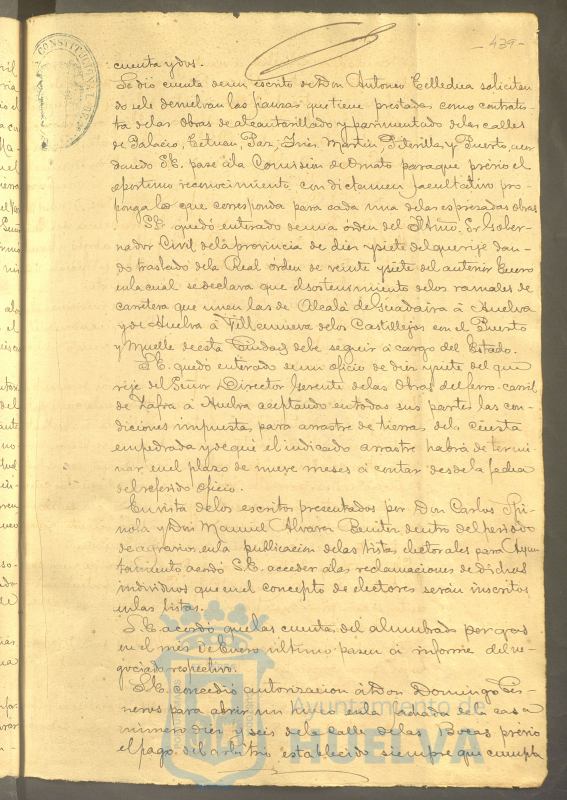 -439-
CONSTITUCIONAL
cuenta y dos.
Se dió cuenta de un escrito de Don Antonio Tellechea solicitan
do se le devuelvan las fianzas que tiene prestadas como contratis-
ta de las Obras de alcantarillado y pavimentado de las calles
de Palacio, Tetuan, Paz, Ines Martin, Piterilla, y Puerto, acor
dando S.E. pase á la Comisión de Ornato para que prévio el
oportuno reconocimiento, con dictamen facultativo pro-
ponga lo que corresponda para cada una de las espresadas obras
S.E. quedó enterado de una órden del Iltmo. Sr Gober-
nador Civil de la provincia de diez y siete del que rije dan-
do traslado de la Real órden de veinte y siete del anterior Enero
en la cual se declara que el sostenimiento de los ramales de
carretera que unen las de Alcalá de Guadaira á Huelva
y de Huelva á Villanueva de los Castillejos en el Puerto
y Muelle de esta Ciudad debe seguir á cargo del Estado.
S.E. quedó enterado de un oficio de diez y siete del que
rije del Señor Director Gerente de las Obras del ferro-carril
de Zafra á Huelva aceptando en todas sus partes las con-
diciones impuestas para arrastre de tierras de la cuesta
empedrada y de que el indicado arrastre habrá de termi-
nar en el plazo de nueve meses á contar desde la fecha
del referido oficio.
En vista de los escritos presentados por Don Carlos Spí
nola y Don Manuel Alvarez Benitez dentro del periodo
de agravios en la publicación de las listas electorales para Ayun-
tamiento acordó S.E. acceder a las reclamaciones de dichos
individuos que en el concepto de electores serán inscritos
en las listas.
S.E. acordó que las cuentas del alumbrado por gas
en el mes de Enero último pasen á informe del ne-
gociado respectivo.
S.E. concedió autorizacion á Don Domingo Cis-
neros para abrir un hueco en la fachada de la casa
número diez y seis de la calle de las Bocas prévio
el pago del arbitrio establecido siempre que cumpla
Ayuntamiento de
HUELVA